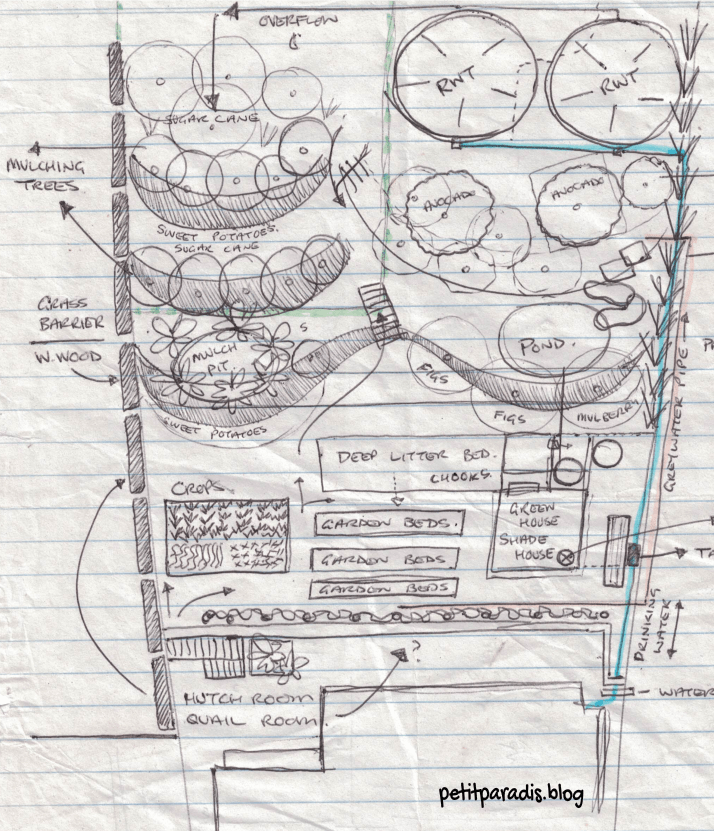 OVERFLOW
RWT
RWT
SUGAR CANE
MULCHING
TREES
AVOCADO
AVOCADO
SWEET POTATOES.
SUGAR CANE
GRASS
BARRIER
W.WOOD
S
MULCH
PIT.
POND.
FIGS
FIGS
MULBERRY
SWEET POTATOES
GREYWATER PIPE
DEEP LITTER BED.
CHOOKS.
CROPS.
GARDEN BEDS.
GREEN
HOUSE
SHADE
HOUSE
GARDEN BEDS
GARDEN BEDS
TA
DRINKING
WATER
?
HUTCH ROOM
QUAIL ROOM.
WATER
petitparadis.blog